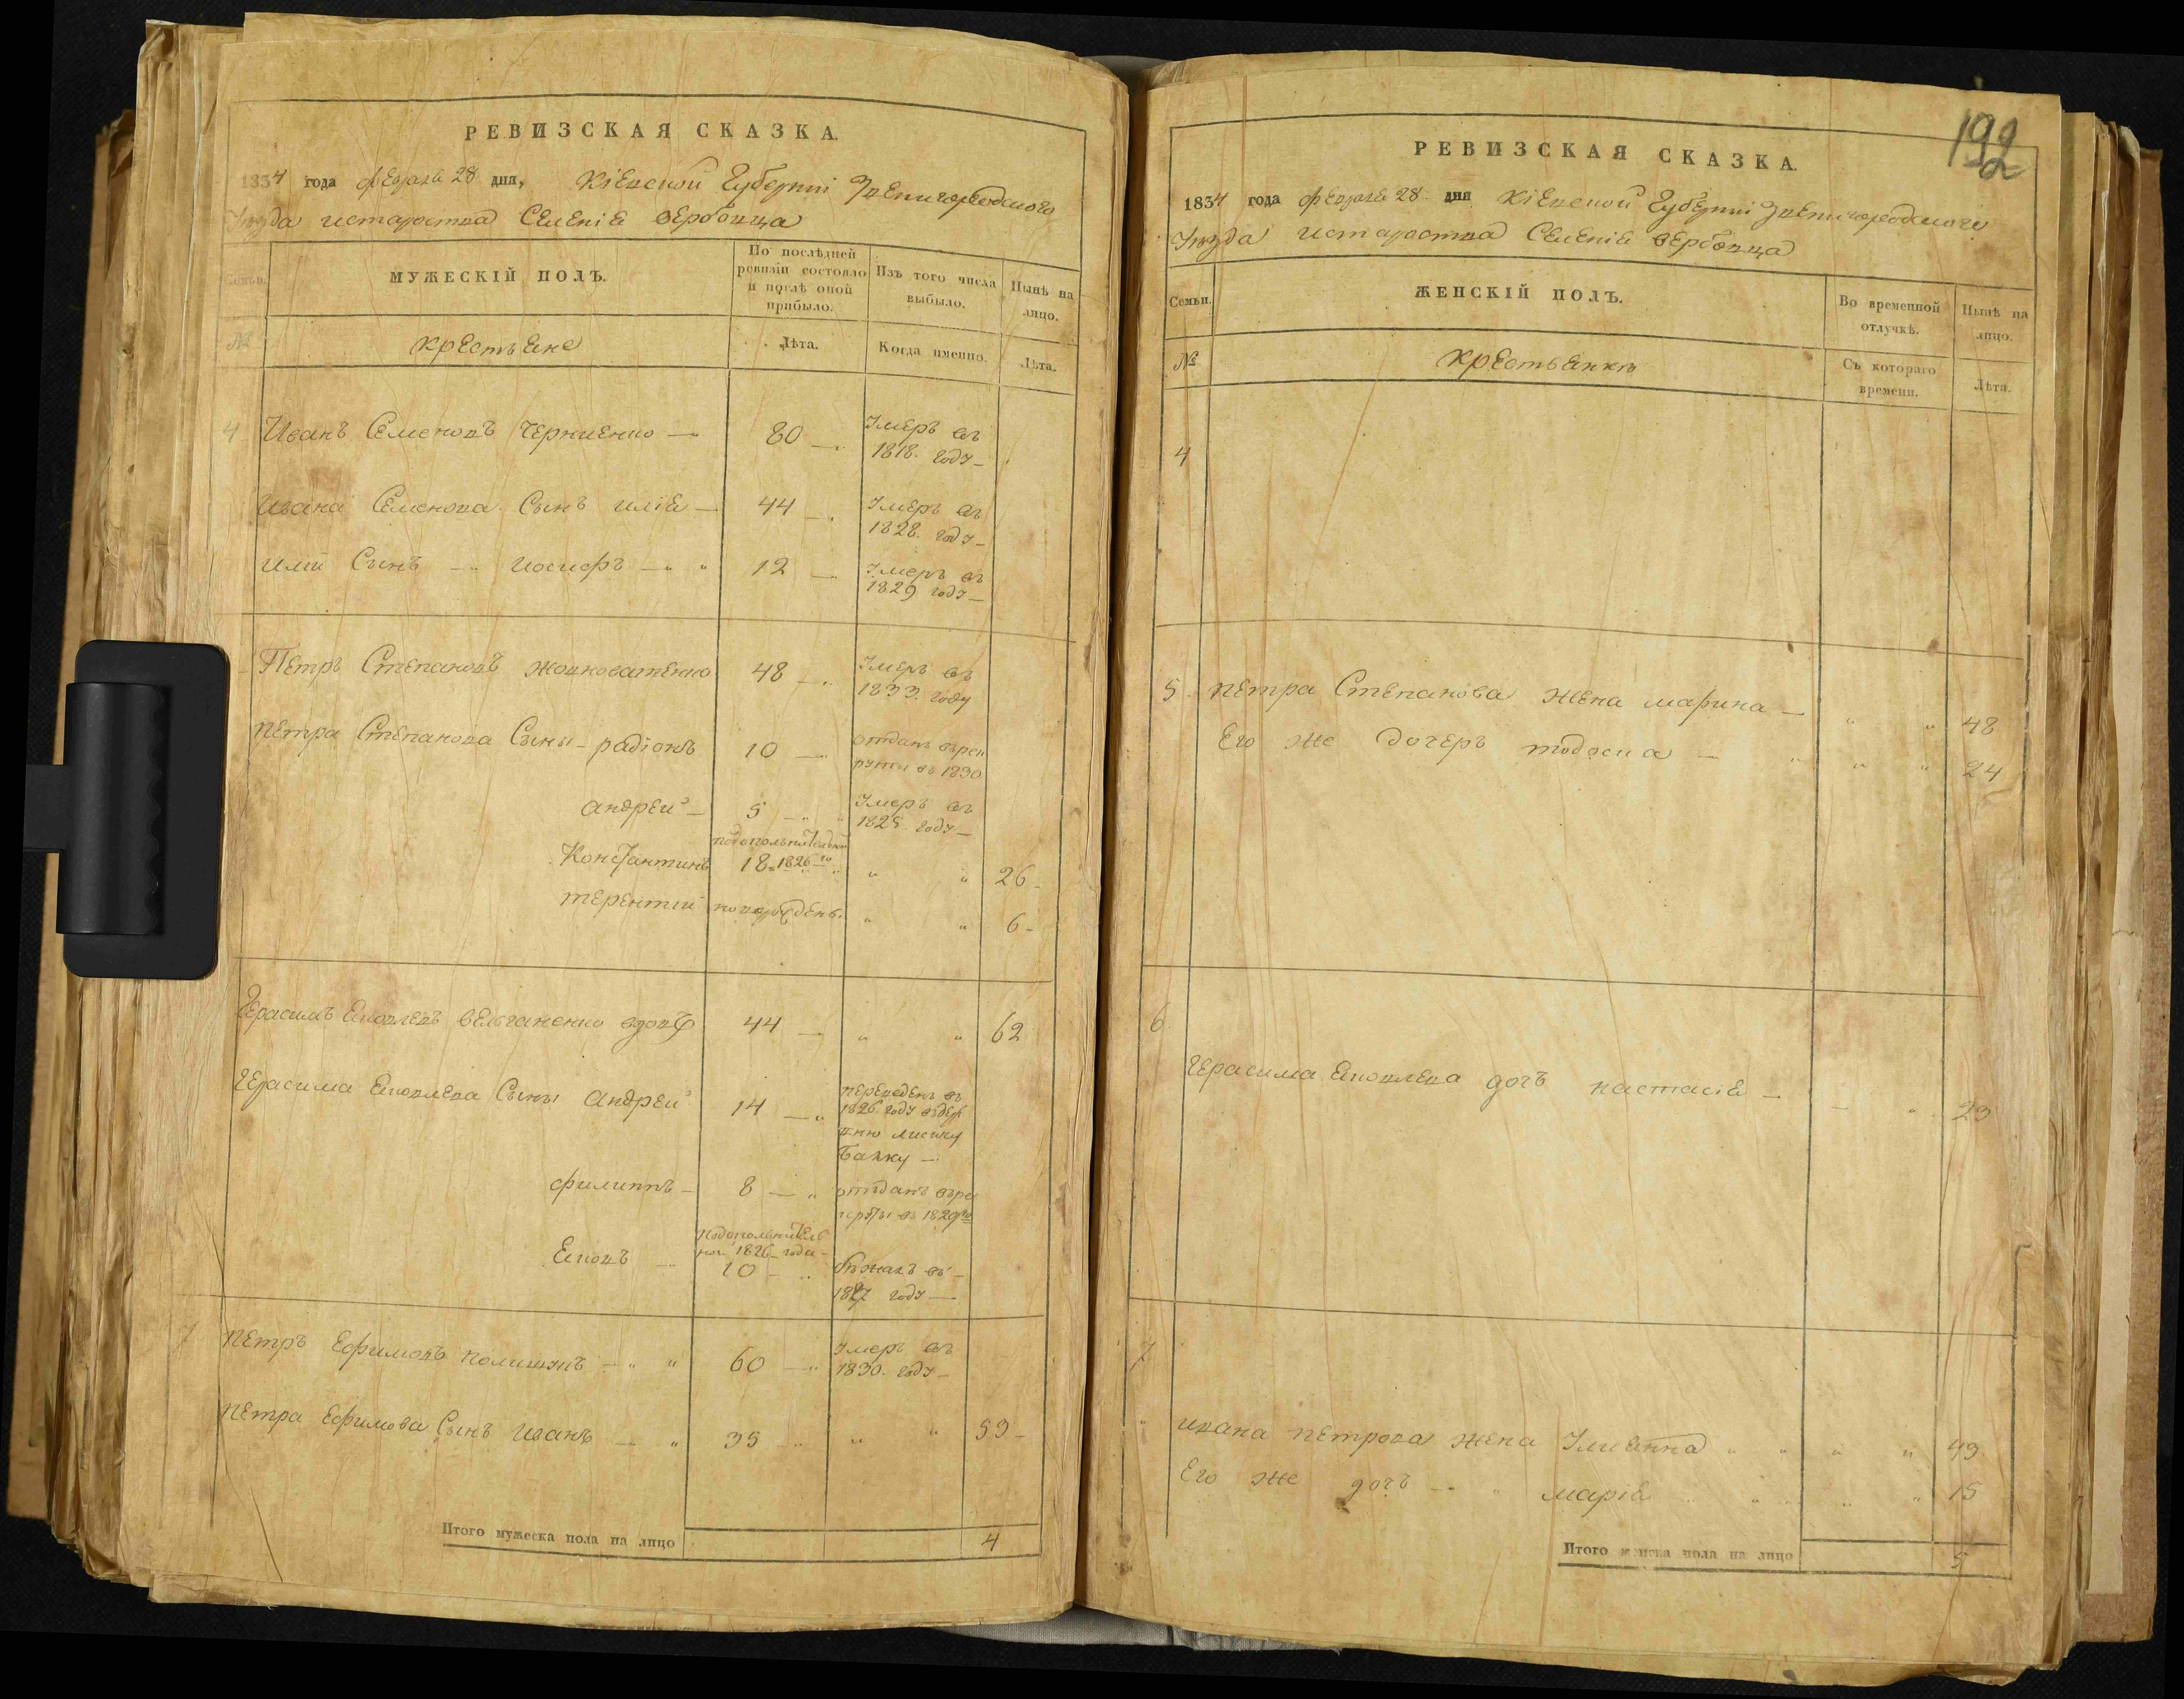 РЕВИЗСКАЯ СКАЗКА.
1834 года февраля 28 дня, Кіевской Губерніи Звенигородского
Уезда истароства Селенія Вербовца
Семьи.
МУЖЕСКІЙ ПОЛЪ.
По послѣдней ревизіи состояло и послѣ оной прибыло.
Изъ того числа выбыло.
Нынѣ на лицо.
№
крестьяне
Лѣта.
Когда именно.
Лѣта.
4 Иванъ Семеновъ Черниенко — 80 — Умеръ въ
1818. году —
Ивана Семенова Сынъ илія — 44 — Умеръ въ
1828. году —
илии Сынъ — Иосифъ — 12 — Умеръ въ
1829 году —
Петръ Степановъ жовноватенко 48 — Умеръ въ
1833. году
Петра Степанова Сыны — радіонъ 10 — отданъ врек
руты въ 1830
андрей — 5 — Умеръ въ
1825. году —
подополнителной
Константинъ 18 = 1826го „ „ 26 -
терентий новорожденъ. „ „ 6 -
Герасимъ Яковлевъ вельганенко вдовъ 44 — „ „ 62
Герасима Яковлева Сыны Андрей 14 — переведенъ въ
1826. году вдер
вню лисичу
Балку —
филиппъ — 8 — отданъ вре
круты въ 1829го
подополнитель
ной 1826 - года -
Яковъ — 10 — бѣжалъ въ —
1827 году —
7 Петръ Ефимовъ полищукъ — „ „ 60 — Умеръ въ
1830. году —
Петра Ефимова Сынъ Иванъ — „ 35 — „ „ 53 -
Итого мужеска пола на лицо 4
192
РЕВИЗСКАЯ СКАЗКА.
1834 года февраля 28 дня Кіевской Губерніи Звенигородского
Уезда истароства Селенія Вербовца
Семьи.
ЖЕНСКІЙ ПОЛЪ.
Во временной отлучкѣ.
Нынѣ на лицо.
№
крестьянки
Съ котораго времени.
Лѣта.
4
5. Петра Степанова жена марина — „ „ 48
Его же дочеръ тодосиа — „ „ „ 24
6
Герасима Яковлева дочъ настасія — — „ 23
7
ивана петрова жена Улиянна „ „ „ „ 49
Его же дочъ — „ марія „ „ „ „ 15
Итого женска пола на лицо 5